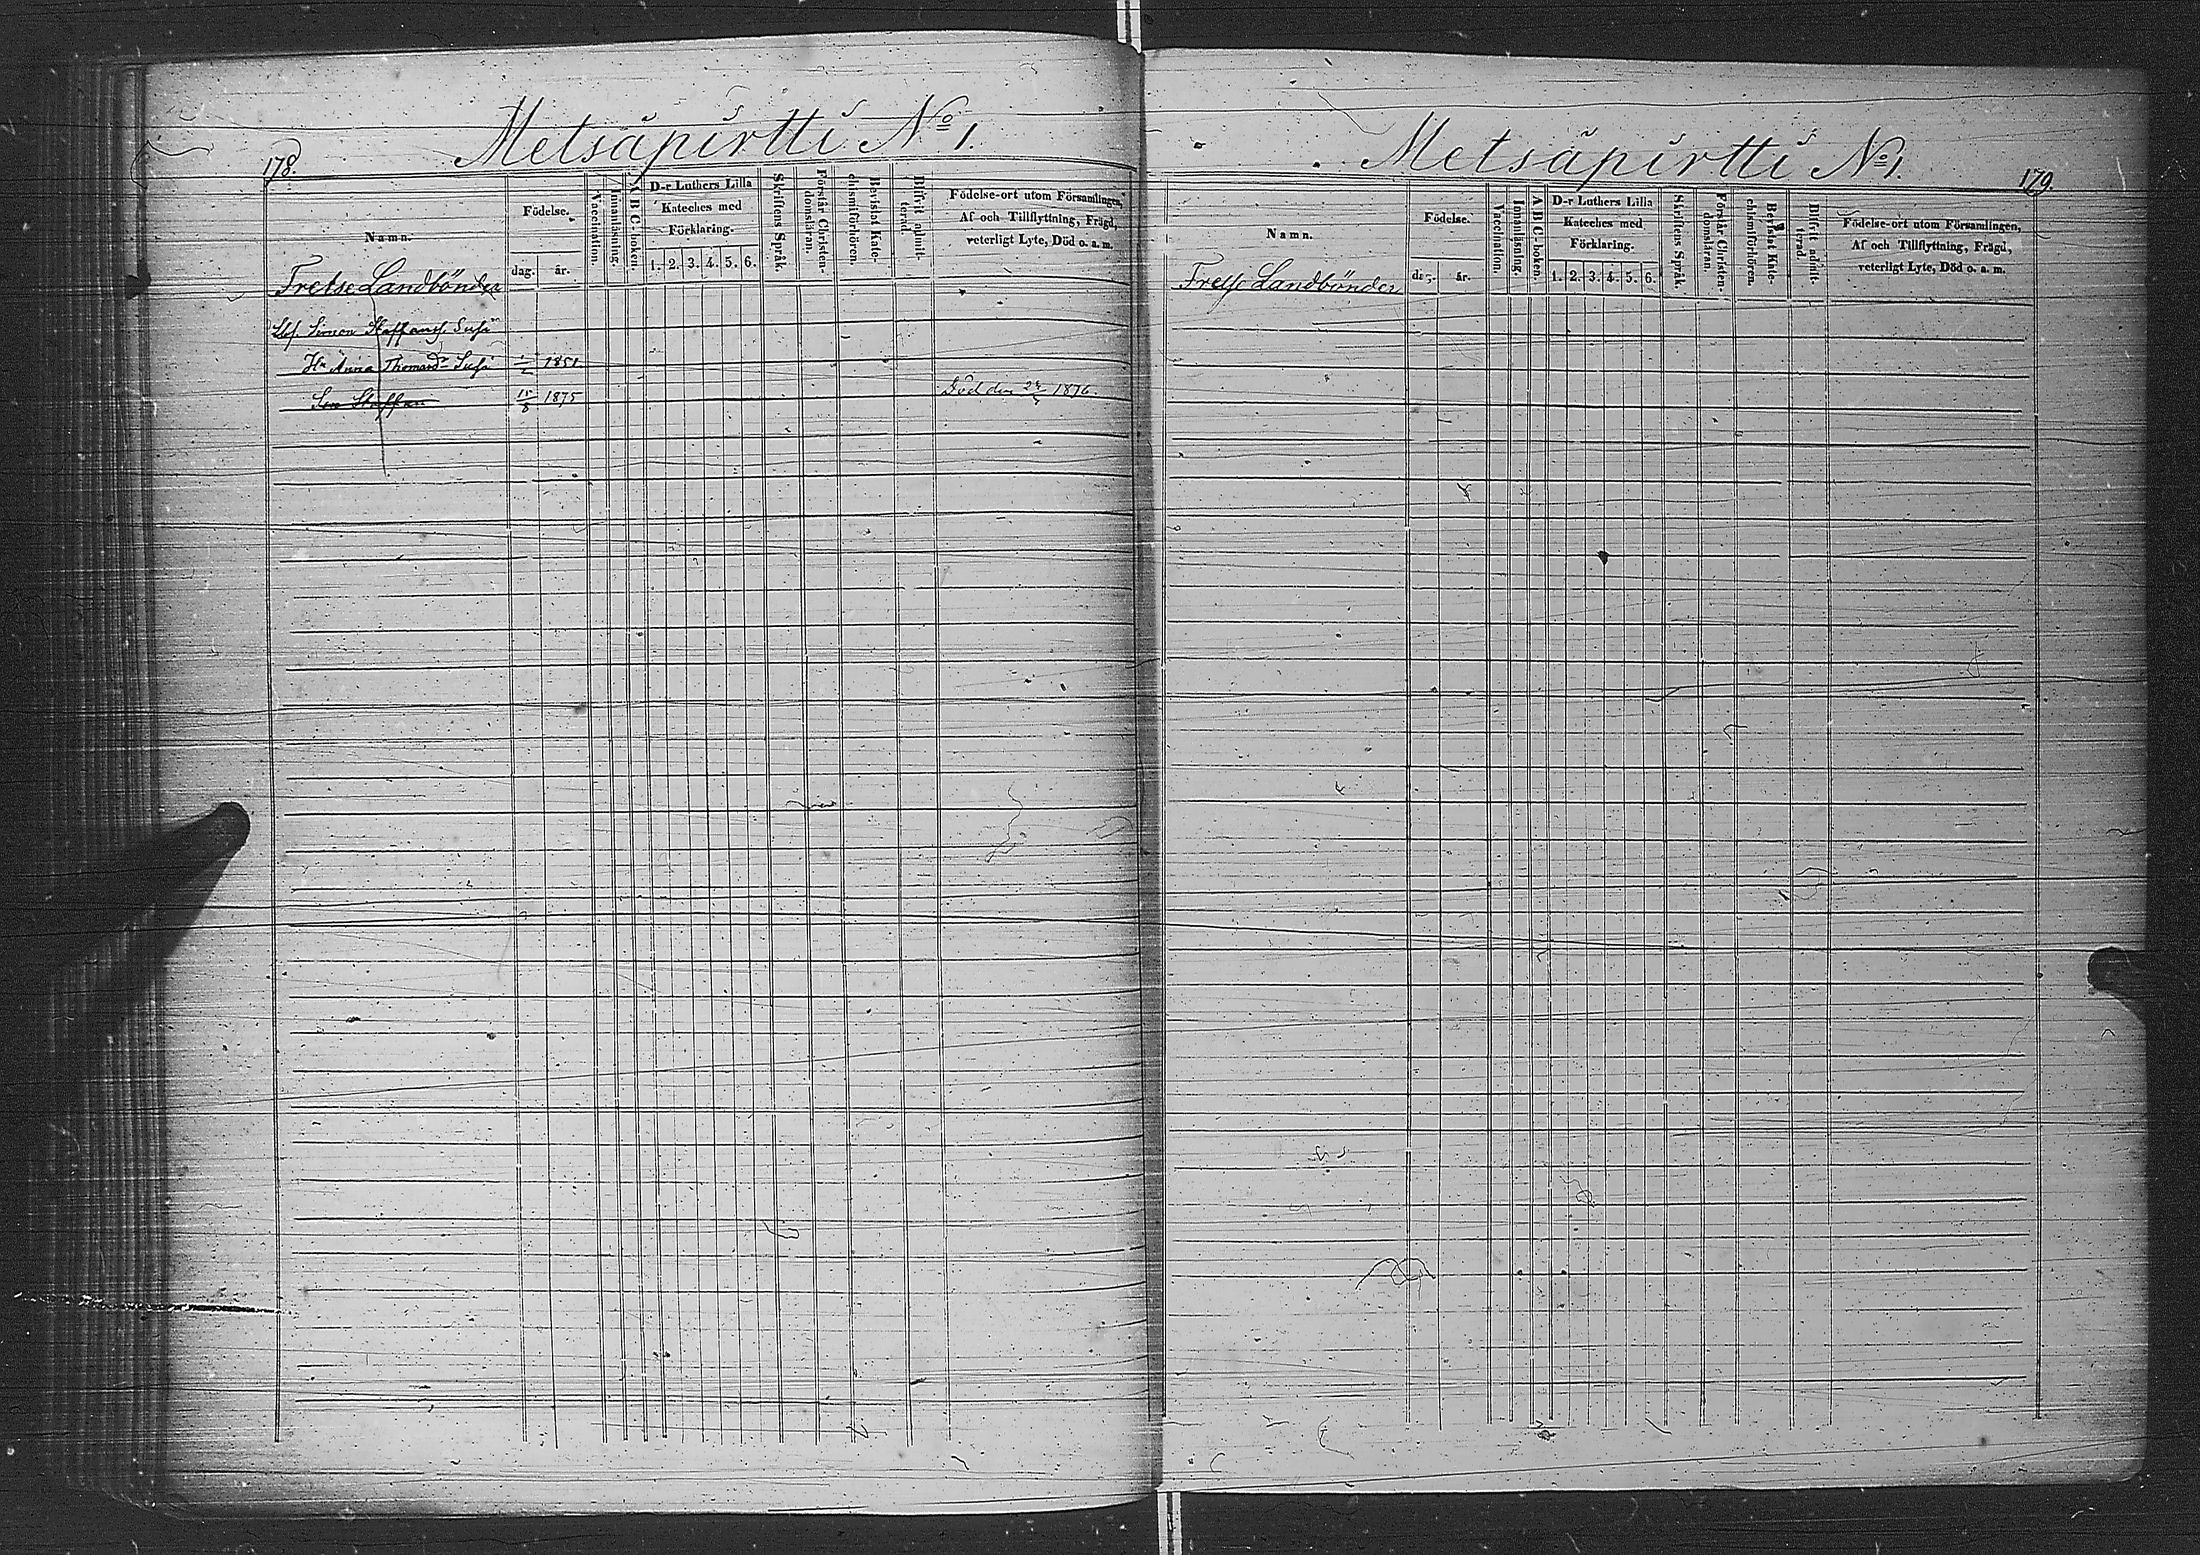 178.
Metsäpirtti No 1.
Namn.
Födelse.
dag. år.
Vaccination.
Innanläsning.
A B C-boken.
D-r Luthers Lilla
Kateches med
Förklaring.
1. 2. 3. 4. 5. 6.
Skriftens Språk.
Förstår Christen-
domsläran.
Bevistat Kate-
chismiförhören.
Blifvit admit-
terad
Födelse-ort utom Församlingen,
Af- och Tillflyttning, Frägd,
veterligt Lyte, Död o. a. m.
Frelse Landbönder
Simon Staffanss. Susi
Hu Anna Thomasdr Susi 1851.
Son Staffan 15/8 1875 Död den 1876.
Metsäpirtti No 1.
179.
Namn.
Födelse.
dag. år.
Vaccination.
Innanläsning.
A B C-boken.
D-r Luthers Lilla
Kateches med
Förklaring.
1. 2. 3. 4. 5. 6.
Skriftens Språk.
Förstår Christen-
domsläran.
Bevistat Kate-
chismiförhören.
Blifvit admit-
terad.
Födelse-ort utom Församlingen,
Af och Tillflyttning, Frägd,
veterligt Lyte, Död o. a. m.
Frelse Landbönder